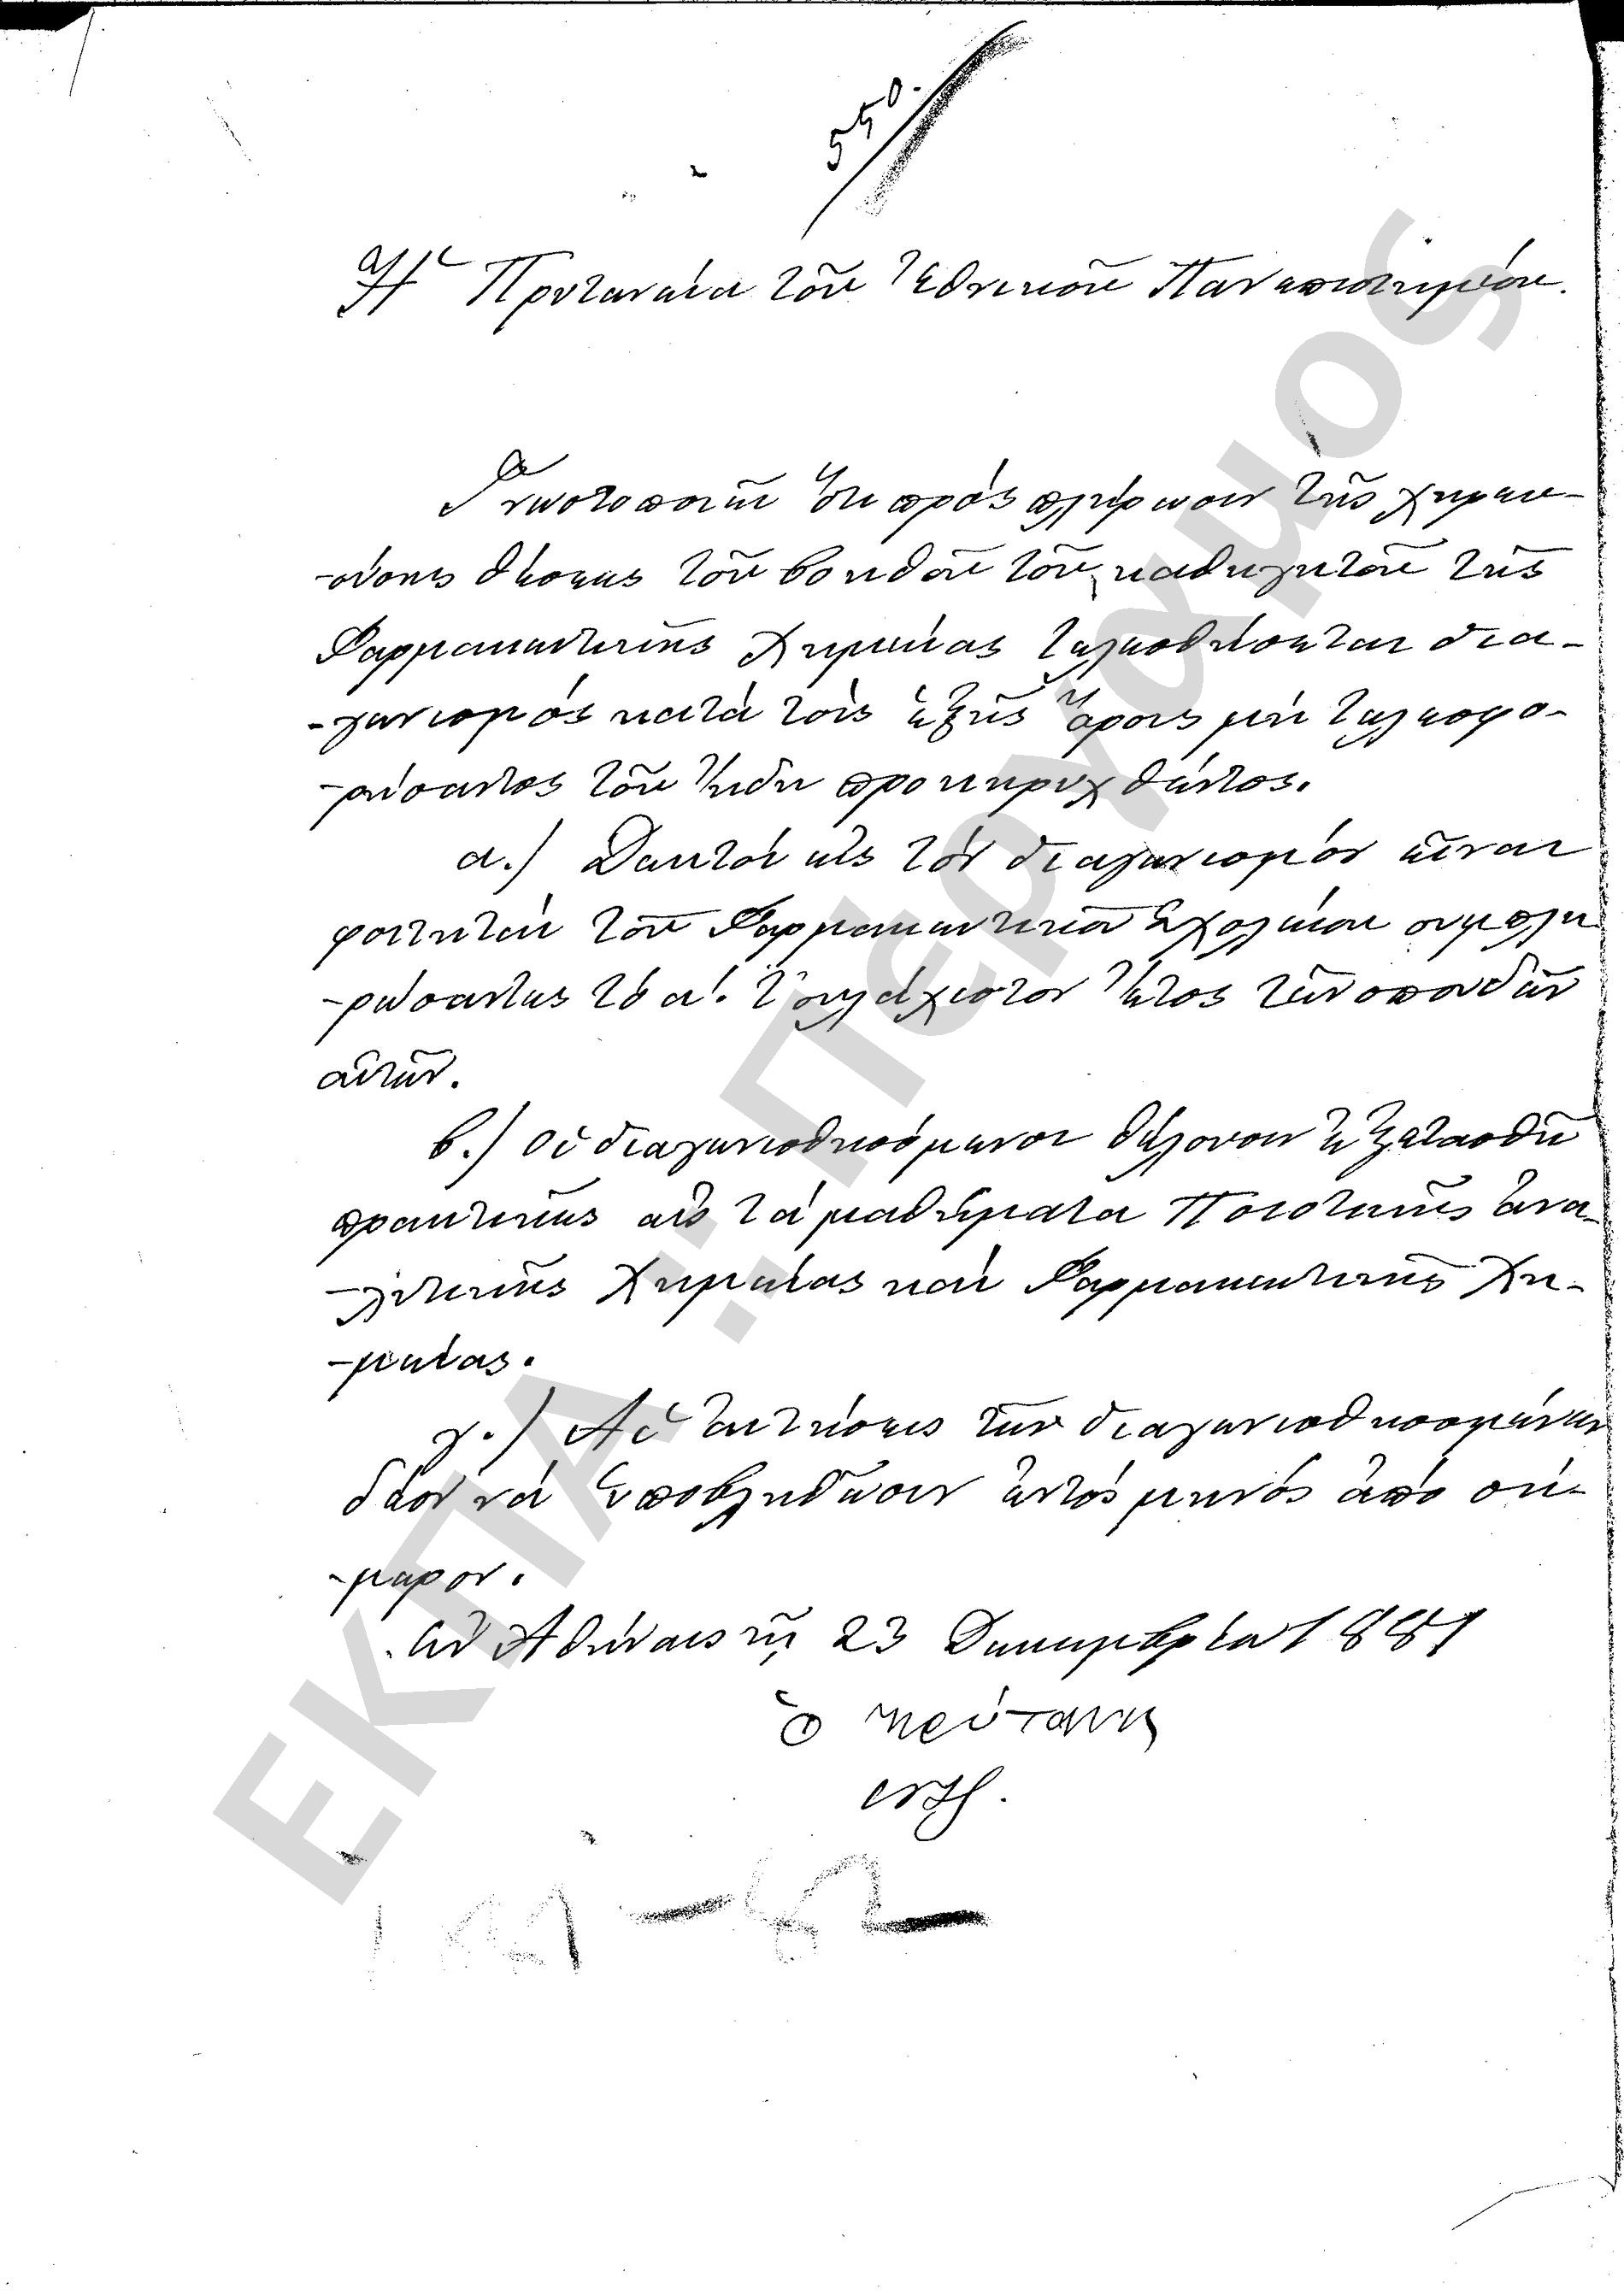 550.
Ἡ Πρυτανεία τοῦ Ἐθνικοῦ Πανεπιστημίου.
Γνωστοποιεῖ ὅτι πρὸς πλήρωσιν τῆς χηρευ-
-ούσης θέσεως τοῦ βοηθοῦ τοῦ καθηγητοῦ τῆς
Φαρμακευτικῆς Χημείας τελεσθήσεται δια-
-γωνισμὸς κατὰ τοὺς ἑξῆς ὅρους μὴ τελεσφο-
-ρήσαντος τοῦ ἤδη προκηρυχθέντος.
α.) Δεκτοὶ εἰς τὸν διαγωνισμὸν εἶναι
φοιτηταὶ τοῦ Φαρμακευτικοῦ Σχολείου συμπλη
-ρώσαντες τὸ α'. τοὐλάχιστον ἔτος τῶν σπουδῶν
αὐτῶν.
β.) Οἱ διαγωνισθησόμενοι θέλουσιν ἐξετασθῆ
πρακτικῶς εἰς τὰ μαθήματα Ποιοτικῆς ἀνα-
-λυτικῆς Χημείας καὶ Φαρμακευτικῆς Χη-
-μείας.
γ.) Αἱ αἰτήσεις τῶν διαγωνισθησομένων
δέον νὰ ὑποβληθῶσιν ἐντὸς μηνὸς ἀπὸ σή-
-μερον.
Ἐν Ἀθήναις τῇ 23 Δεκεμβρίου 1881
Ὁ Πρύτανις
ΕΚΠΑ: "Πέργαμος